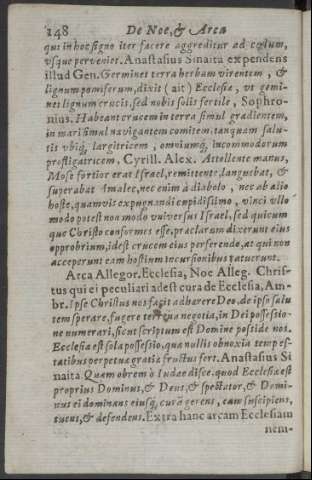 148 De Noe, & Arca
qui in hoc signo iter facere aggreditur ad cœlum,
vsque perveniet. Anastasius Sinaita expendens
illud Gen. Germinet terra herbam virentem, &
lignum pomiferum, dixit (ait) Ecclesiæ, vt germi-
nes lignum crucis, sed nobis solis fertile, Sophro-
nius. Habeant crucem in terra simul gradientem,
in mari simul navigantem comitem, tanquam salu-
tis vbiq; largitricem, omniumq; incommodorum
profligatricem, Cyrill. Alex. Attollente manus,
Mose fortior erat Israel, remittente, languebat, &
superabat Amalec, nec enim à diabolo, nec ab alio
hoste, quamvis expugnandi cupidissimo, vinci vllo
modo potest non modo vniversus Israel, sed quicum
que Christo conformes esse, præclarum dixerunt eius
opprobrium, idest crucem eius perferendo, at qui non
acceperunt eam hostium incursionibus patuerunt.
Arca Allegor. Ecclesia, Noe Alleg. Chris-
tus qui ei peculiari adest cura de Ecclesia, Am-
br. Ipse Christus nos facit adhærere Deo, de ipsa salu
tem sperare, fugere terrena negotia, in Dei possessio-
ne numerari, sicut scriptum est Domine posside nos.
Ecclesia est sola possessio, qua nullis obnoxia tempes-
tatibus perpetuæ gratiæ fructus fert. Anastasius Si
naita. Quam obrem ò Iudæe disce, quod Ecclesiæ est
proprius Dominus, & Deus, & spectator, & Domi-
nus ei dominans eiusq; curã gerens, eam suscipiens,
tuens, & defendens. Extra hanc arcam Ecclesiam
nem-